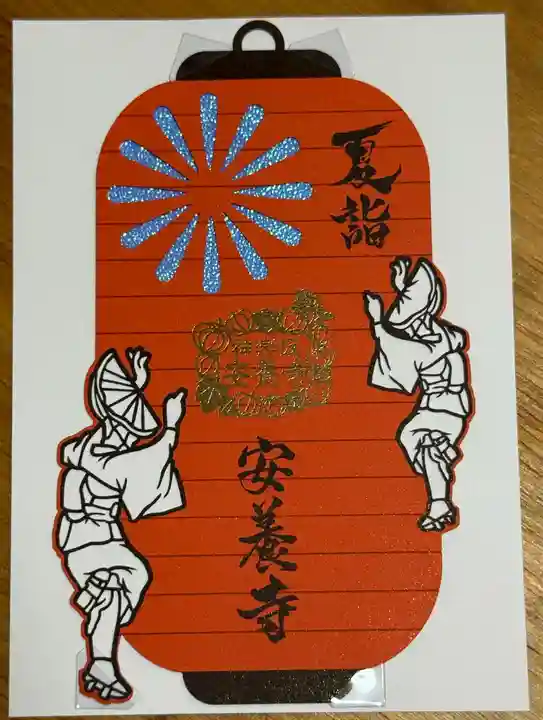 夏詣
安養寺
安養寺